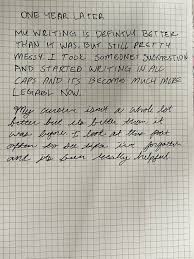 ONE YEAR LATER
MY WRITING IS DEFINTLY BETTER
THAN IT WAS, BUT STILL PRETTY
MESSY I TOOK SOMEONES SUGGESTION
AND STARTED WRITING IN ALL
CAPS AND ITS BECOME MUCH MORE
LEGIBLE NOW.
My cursive isn't a whole lot
better but its better than it
was before I look at this post
often to see tips ive forgotten
and its been really helpful